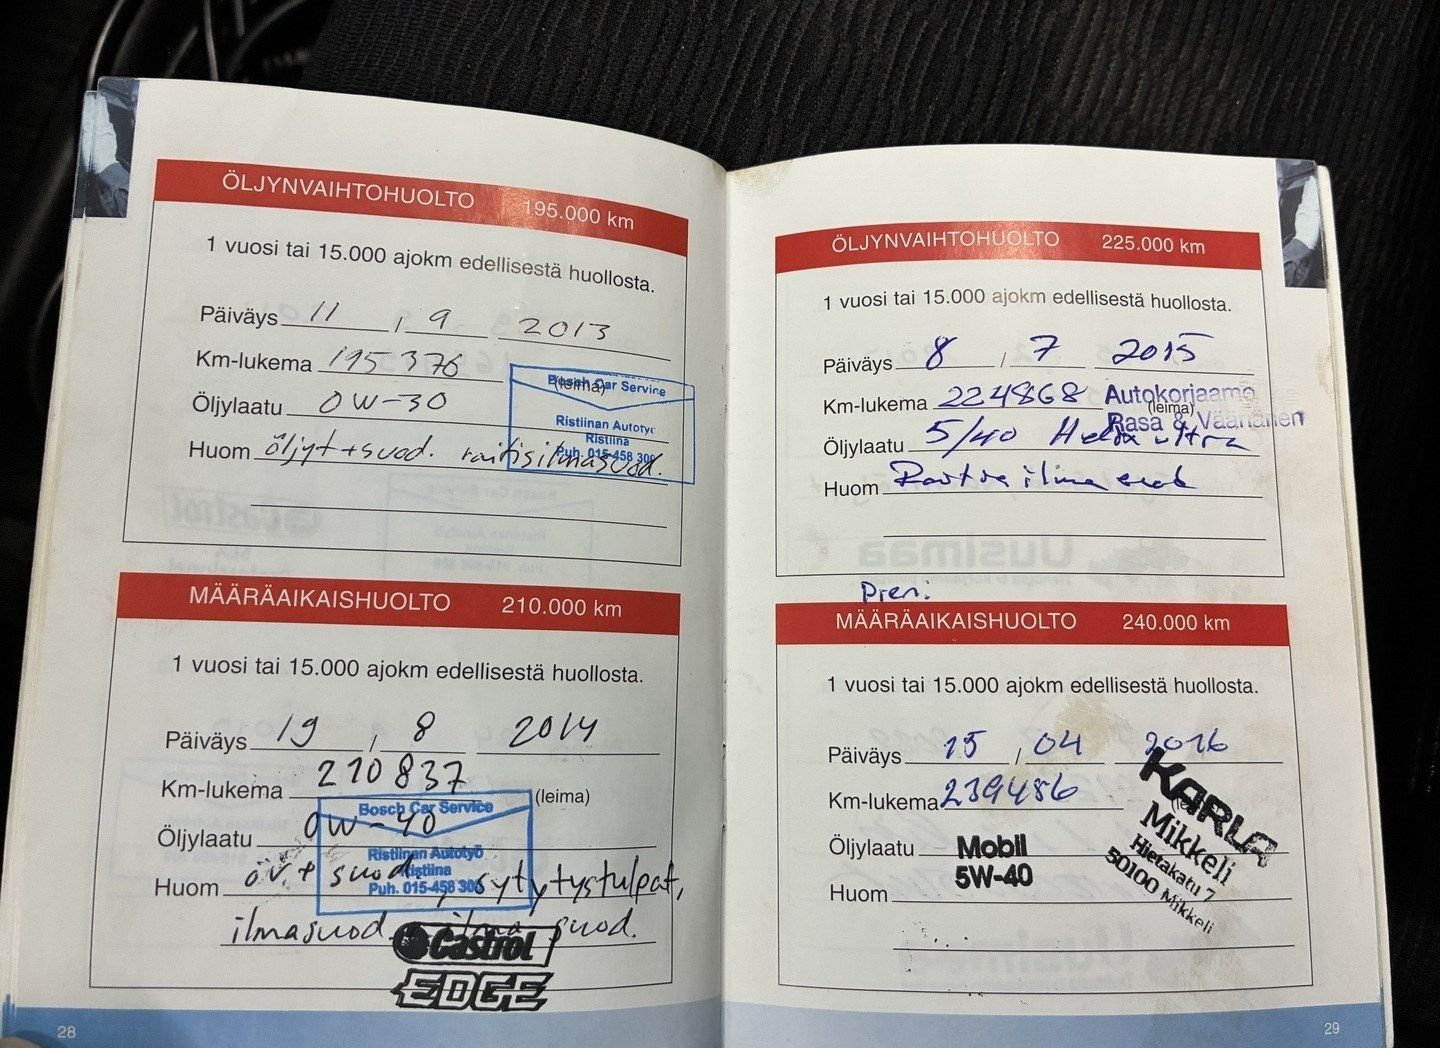 ÖLJYNVAIHTOHUOLTO 195.000 km
1 vuosi tai 15.000 ajokm edellisestä huollosta.
Päiväys 11 / 9 2013
Km-lukema 195376
(leima)
Bosch Car Service
Öljylaatu 0W-30
Ristiinan Autotyö
Ristiina
Puh. 015-458 300
Huom öljyt+suod. raitisilmasuod.
MÄÄRÄAIKAISHUOLTO 210.000 km
1 vuosi tai 15.000 ajokm edellisestä huollosta.
Päiväys 19 / 8 2014
Km-lukema 210837
(leima)
Bosch Car Service
Öljylaatu 0W-40
Ristiinan Autotyö
Ristiina
Puh. 015-458 300
Huom öv+ suod. sytytystulpat,
ilmasuod. ilma suod.
Castrol
EDGE
28
ÖLJYNVAIHTOHUOLTO 225.000 km
1 vuosi tai 15.000 ajokm edellisestä huollosta.
Päiväys 8 / 7 2015
Km-lukema 224868
Autokorjaamo
(leima)
Rasa & Väänänen
Öljylaatu 5/40 Helix ultra
Huom
MÄÄRÄAIKAISHUOLTO 240.000 km
1 vuosi tai 15.000 ajokm edellisestä huollosta.
Päiväys 15 / 04 2016
Km-lukema 239486
KARLA
Mikkeli
Hietakatu 7
50100 Mikkeli
Öljylaatu Mobil
5W-40
Huom
29